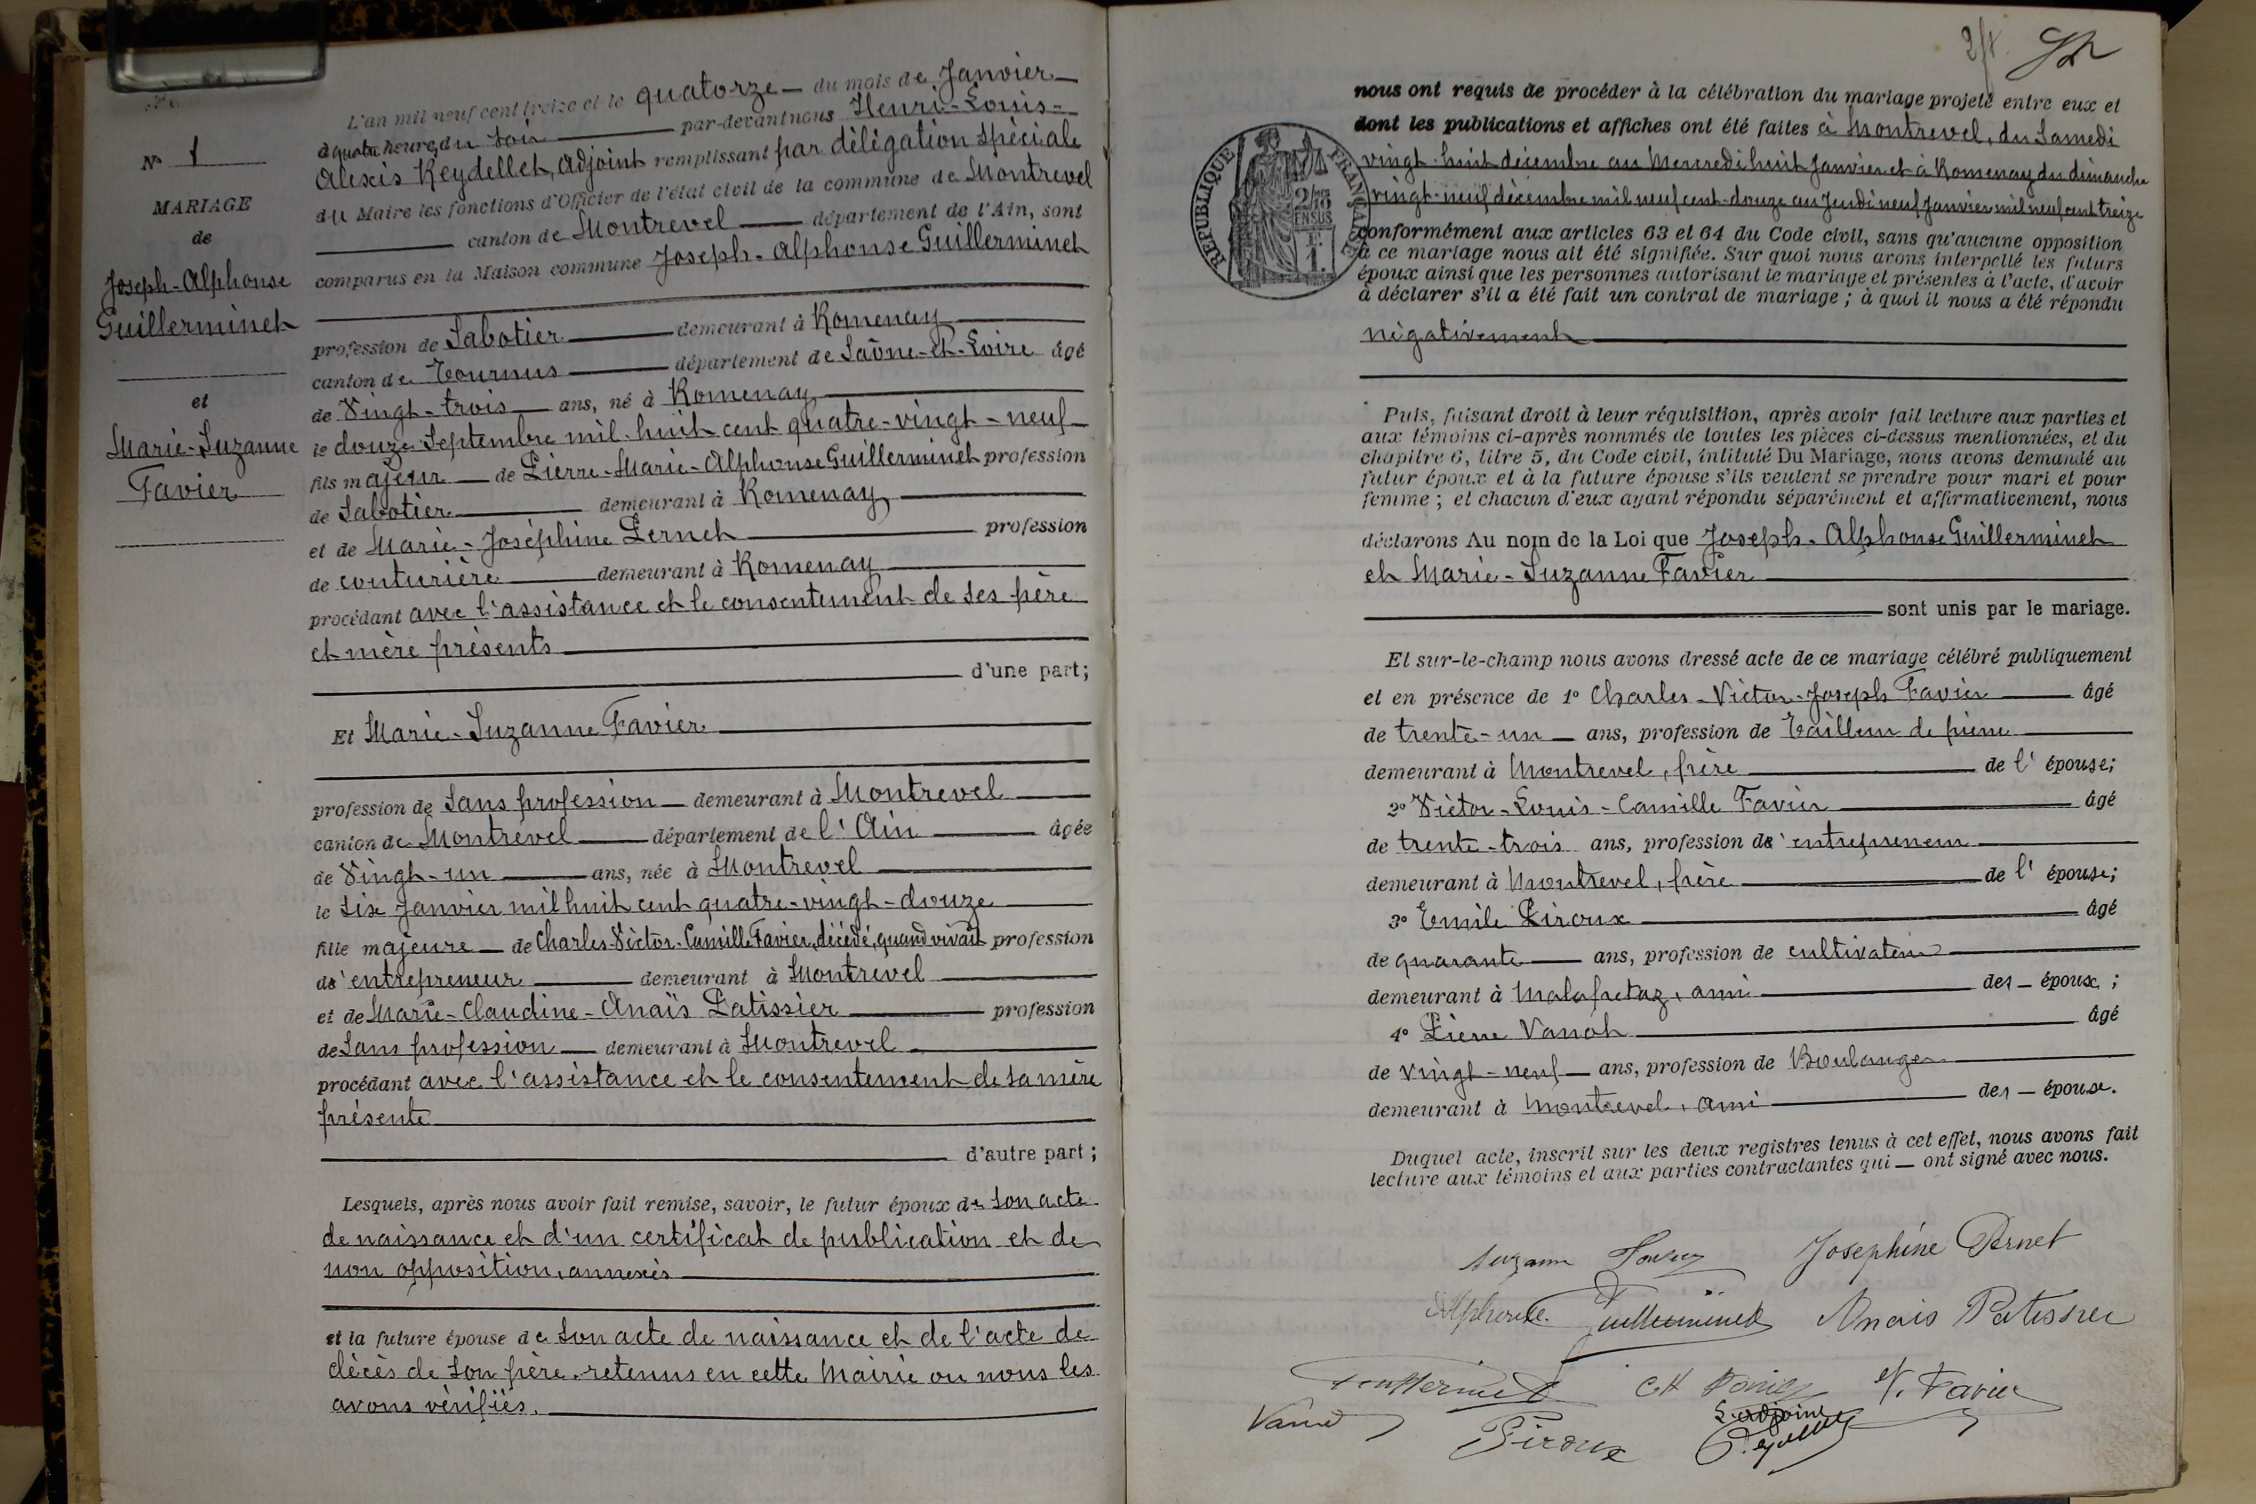 Nº 1
MARIAGE
de
Joseph-Alphonse
Guillerminet
et
Marie-Suzanne
Favier
L'an mil neuf cent treize et le quatorze du mois de Janvier
à quatre heures du soir par-devant nous Henri-Louis-
Alexis Reydellet, Adjoint remplissant par délégation spéciale
du Maire les fonctions d'Officier de l'état civil de la commune de Montrevel
canton de Montrevel département de l'Ain, sont
comparus en la Maison commune Joseph-Alphonse Guillerminet
profession de Sabotier demeurant à Romenay
canton de Tournus département de Saône-et-Loire âgé
de Vingt-trois ans, né à Romenay
le douze Septembre mil-huit cent quatre-vingt-neuf
fils majeur de Pierre-Marie-Alphonse Guillerminet profession
de Sabotier demeurant à Romenay
et de Marie-Joséphine Pernet profession
de couturière demeurant à Romenay
procédant avec l'assistance et le consentement de ses père
et mère présents
d'une part;
Et Marie-Suzanne Favier
profession de Sans profession demeurant à Montrevel
canton de Montrevel département de l'Ain âgée
de Vingt-un ans, née à Montrevel
le Six Janvier mil huit cent quatre-vingt-douze
fille majeure de Charles-Victor-Camille Favier, décédé, quand vivait profession
d'entrepreneur demeurant à Montrevel
et de Marie-Claudine-Anaïs Patissier profession
de Sans profession demeurant à Montrevel
procédant avec l'assistance et le consentement de sa mère
présente
d'autre part;
Lesquels, après nous avoir fait remise, savoir, le futur époux de son acte
de naissance et d'un certificat de publication et de
non opposition, annexés
et la future épouse de son acte de naissance et de l'acte de
décès de son père, retenus en cette Mairie ou nous les
avons vérifiés.
2/8
nous ont requis de procéder à la célébration du mariage projeté entre eux et
dont les publications et affiches ont été faites à Montrevel, du Samedi
vingt-huit décembre au Mercredi huit Janvier et à Romenay du dimanche
vingt-neuf décembre mil neuf cent-douze au Jeudi neuf Janvier mil neuf cent treize
REPUBLIQUE FRANÇAISE
2/10 EN SUS
1 F.
conformément aux articles 63 et 64 du Code civil, sans qu'aucune opposition
à ce mariage nous ait été signifiée. Sur quoi nous avons interpellé les futurs
époux ainsi que les personnes autorisant le mariage et présentes à l'acte, d'avoir
à déclarer s'il a été fait un contrat de mariage; à quoi il nous a été répondu
négativement
Puis, faisant droit à leur réquisition, après avoir fait lecture aux parties et
aux témoins ci-après nommés de toutes les pièces ci-dessus mentionnées, et du
chapitre 6, titre 5, du Code civil, intitulé Du Mariage, nous avons demandé au
futur époux et à la future épouse s'ils veulent se prendre pour mari et pour
femme; et chacun d'eux ayant répondu séparément et affirmativement, nous
déclarons Au nom de la Loi que Joseph-Alphonse Guillerminet
et Marie-Suzanne Favier
sont unis par le mariage.
Et sur-le-champ nous avons dressé acte de ce mariage célébré publiquement
et en présence de 1º Charles-Victor-Joseph Favier âgé
de trente-un ans, profession de Tailleur de pierre
demeurant à Montrevel, frère de l'épouse;
2º Victor-Louis-Camille Favier âgé
de trente-trois ans, profession d'entrepreneur
demeurant à Montrevel, frère de l'épouse;
3º Emile Piroux âgé
de quarante ans, profession de cultivateur
demeurant à Malafretaz, ami des époux;
4º Pierre Vanoh âgé
de vingt-neuf ans, profession de Boulanger
demeurant à Montrevel, ami des époux.
Duquel acte, inscrit sur les deux registres tenus à cet effet, nous avons fait
lecture aux témoins et aux parties contractantes qui ont signé avec nous.
Suzanne Favier Josephine Pernet
Alphonse Guillerminet Anaïs Patissier
Guillerminet CH Favier V. Favier
L'adjoint
Piroux Reydellet